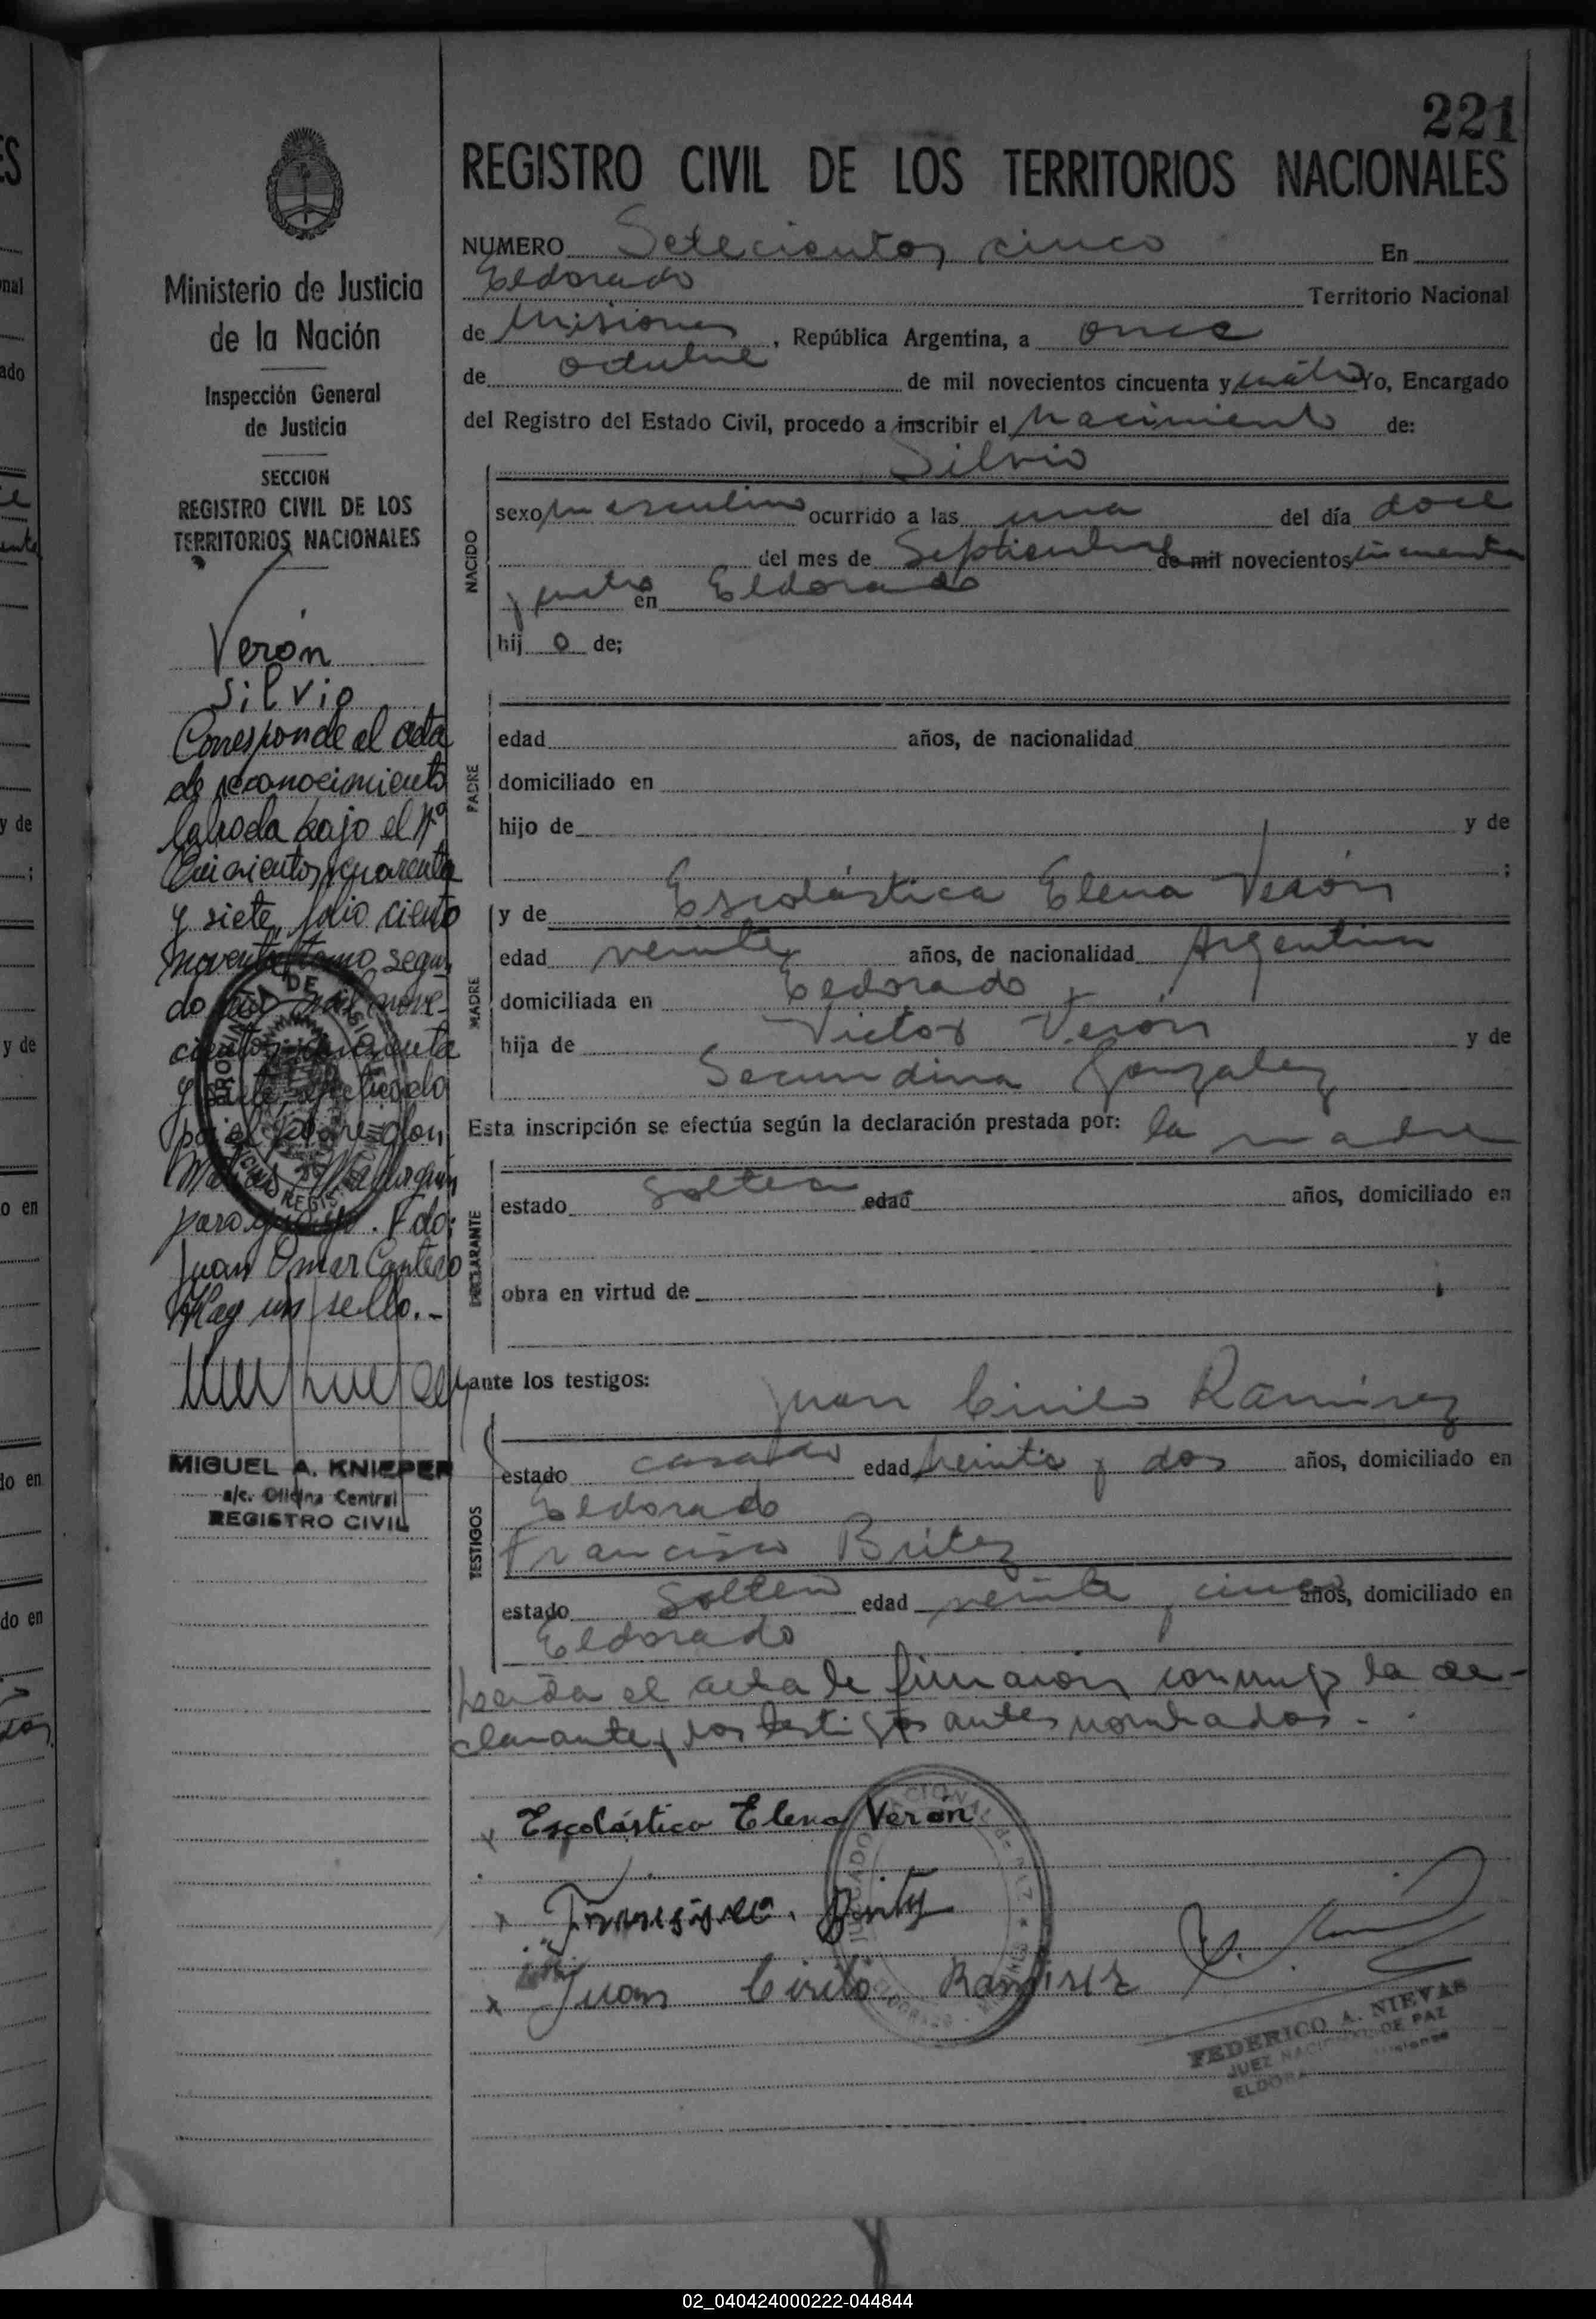 221
REGISTRO CIVIL DE LOS TERRITORIOS NACIONALES
NUMERO Setecientos cinco En
Eldorado Territorio Nacional
de Misiones, República Argentina, a once
de octubre de mil novecientos cincuenta y cuatro Yo, Encargado
del Registro del Estado Civil, procedo a inscribir el Nacimiento de:
Silvio
NACIDO
sexo masculino ocurrido a las una del día doce
del mes de Septiembre de mil novecientos cincuenta
y cuatro en Eldorado
hij o de;
PADRE
edad años, de nacionalidad
domiciliado en
hijo de y de
;
MADRE
y de Escolástica Elena Verón
edad veinte años, de nacionalidad Argentina
domiciliada en Eldorado
hija de Victor Verón y de
Secundina Gonzalez
Esta inscripción se efectúa según la declaración prestada por: la madre
DECLARANTE
estado soltera edad años, domiciliado en
obra en virtud de
ante los testigos:
Juan Cirilo Ramirez
TESTIGOS
estado casado edad treinta y dos años, domiciliado en
Eldorado
Francisco Britez
estado Soltero edad veinte y cinco años, domiciliado en
Eldorado
Leida el acta la firmaron conmigo la de-
clarante y los testigos antes nombrados.-
Escolástica Elena Verón
Francisco Brites
Juan Cirilo Ramirez
FEDERICO A. NIEVAS
JUEZ NACIONAL DE PAZ
ELDORADO Misiones
Ministerio de Justicia
de la Nación
Inspección General
de Justicia
SECCION
REGISTRO CIVIL DE LOS
TERRITORIOS NACIONALES
Verón
Silvio
Corresponde al acta
de reconocimiento
labrada bajo el Nº
Quinientos cuarenta
y siete, folio ciento
noventa tomo segun
do año mil nove-
cientos
por el padre don
paraguayo. Fdo:
Juan Omar Cantero
Hay un sello.-
MIGUEL A. KNIEPER
a/c. Oficina Central
REGISTRO CIVIL
02_040424000222-044844